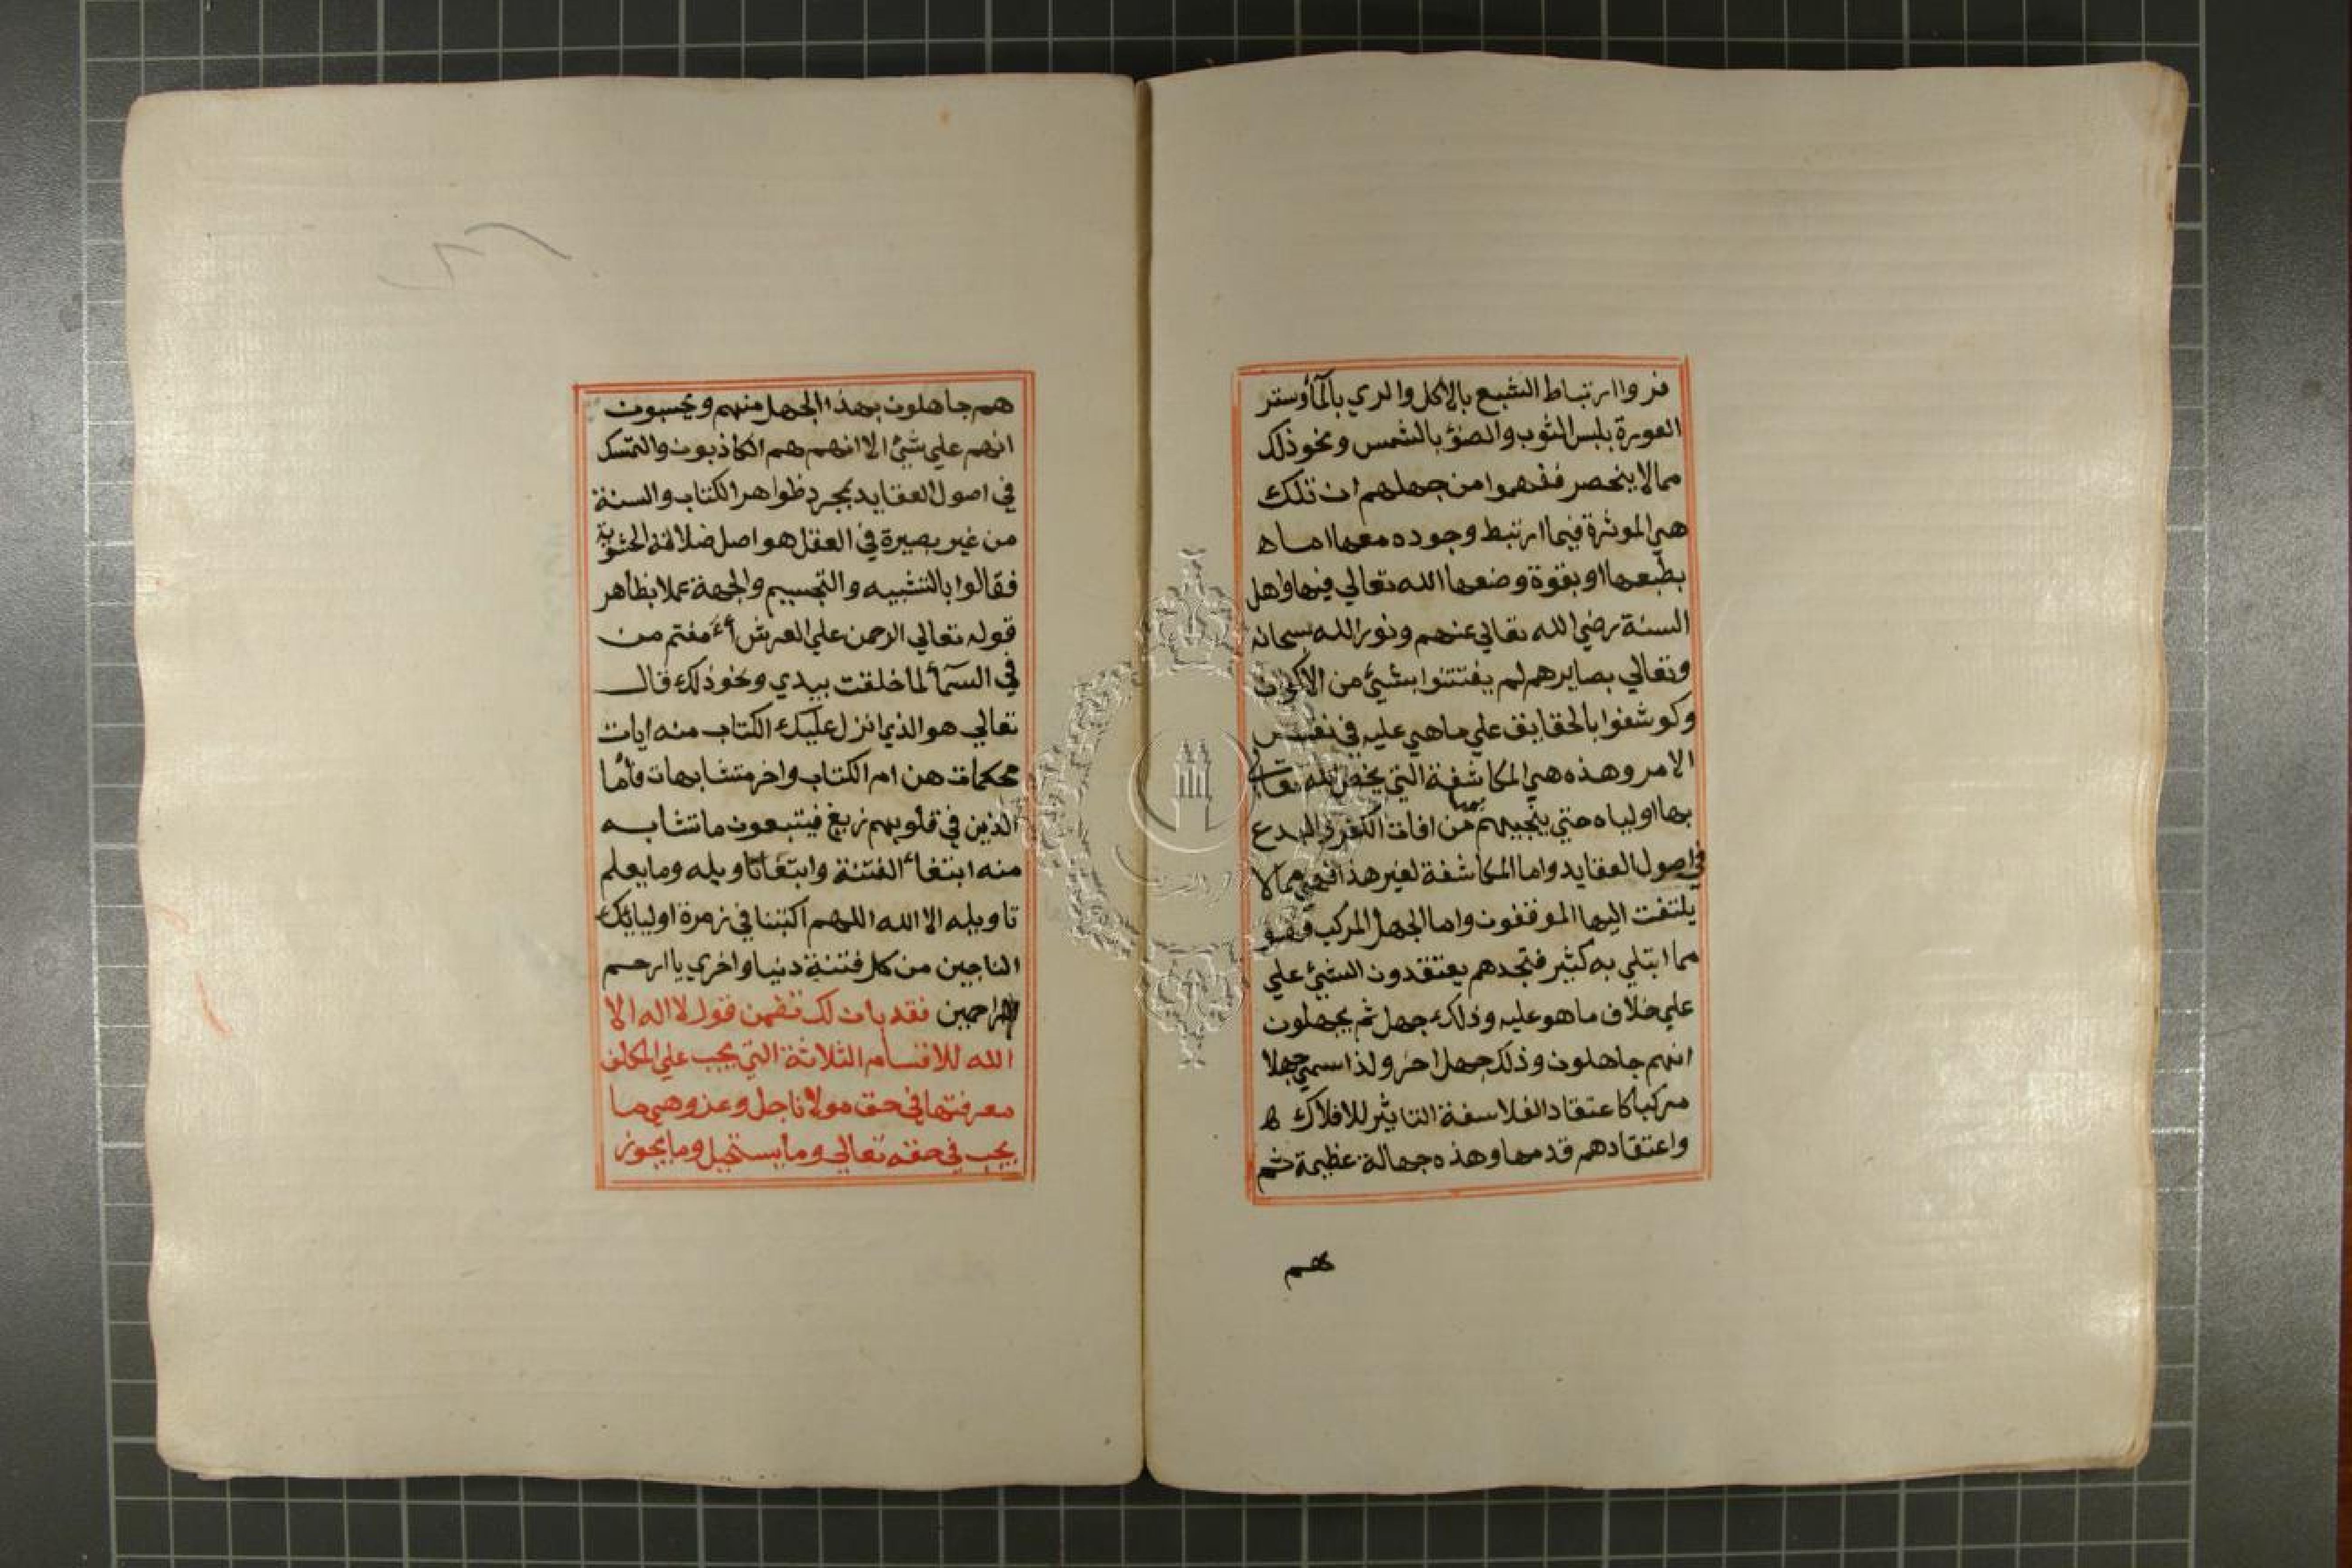 فراوا ارتباط الشبع بالاكل والري بالمأ وستر
العورة بلبس الثوب والضوء بالشمس ونحو ذلك
مما لا ينحصر ففهموا من جهلهم ان تلك
هي الموثرة فيما ارتبط وجوده معها اما ه
بطبعها او بقوة وضعها الله تعالي فيها واهل
السنة رضي الله تعالي عنهم ونور الله سبحانه
وتعالي بصايرهم لم يفتتنوا بشيئ من الاكوان
وكوشفوا بالحقايق علي ما هي عليه في نفس
الامر وهذه هي المكاشفة التي يخص الله تعالي
بها اولياه حتي ينجيهم بها من افات الكفر والبدع
في اصول العقايد واما المكاشفة لغير هذا فهي مما لا
يلتفت اليها الموفقون واما الجهل المركب فهو
مما ابتلي به كثير فتجدهم يعتقدون الشيئ علي
علي خلاف ما هو عليه وذلك جهل ثم يجهلون
انهم جاهلون وذلك جهل اخر ولذا سمي جهلا
مركبا كاعتقاد الفلاسفة التاثير للافلاك ه
واعتقادهم قدمها وهذه جهالة عظيمة ثم
هم
هم جاهلون بهذا الجهل منهم ويحسبون
انهم علي شيئ الا انهم هم الكاذبون والتمسك
في اصول العقايد بمجرد ظواهر الكتاب والسنة
من غير بصيرة في العقل هو اصل ضلالة الحشوية
فقالوا بالتشبيه والتجسيم والجهة عملا بظاهر
قوله تعالي الرحمن علي العرش أءمنتم من
في السمأ لما خلقت بيدي ونحو ذلك قال
تعالي هو الذي انزل عليك الكتاب منه ايات
محكمات هن ام الكتاب واخر متشابهات فأما
الذين في قلوبهم زيغ فيتبعون ما تشابه
منه ابتغاء الفتنة وابتغأ تاويله وما يعلم
تاويله الا الله اللهم اكتبنا في زمرة اوليائك
الناجين من كل فتنة دنيا واخري يا ارحم
الراحمين فقد بان لك تضمن قول لا اله الا
الله للاقسام الثلاثة التي يجب علي المكلف
معرفتها في حق مولانا جل وعز وهي ما
يجب في حقه تعالي وما يستحيل وما يجوز